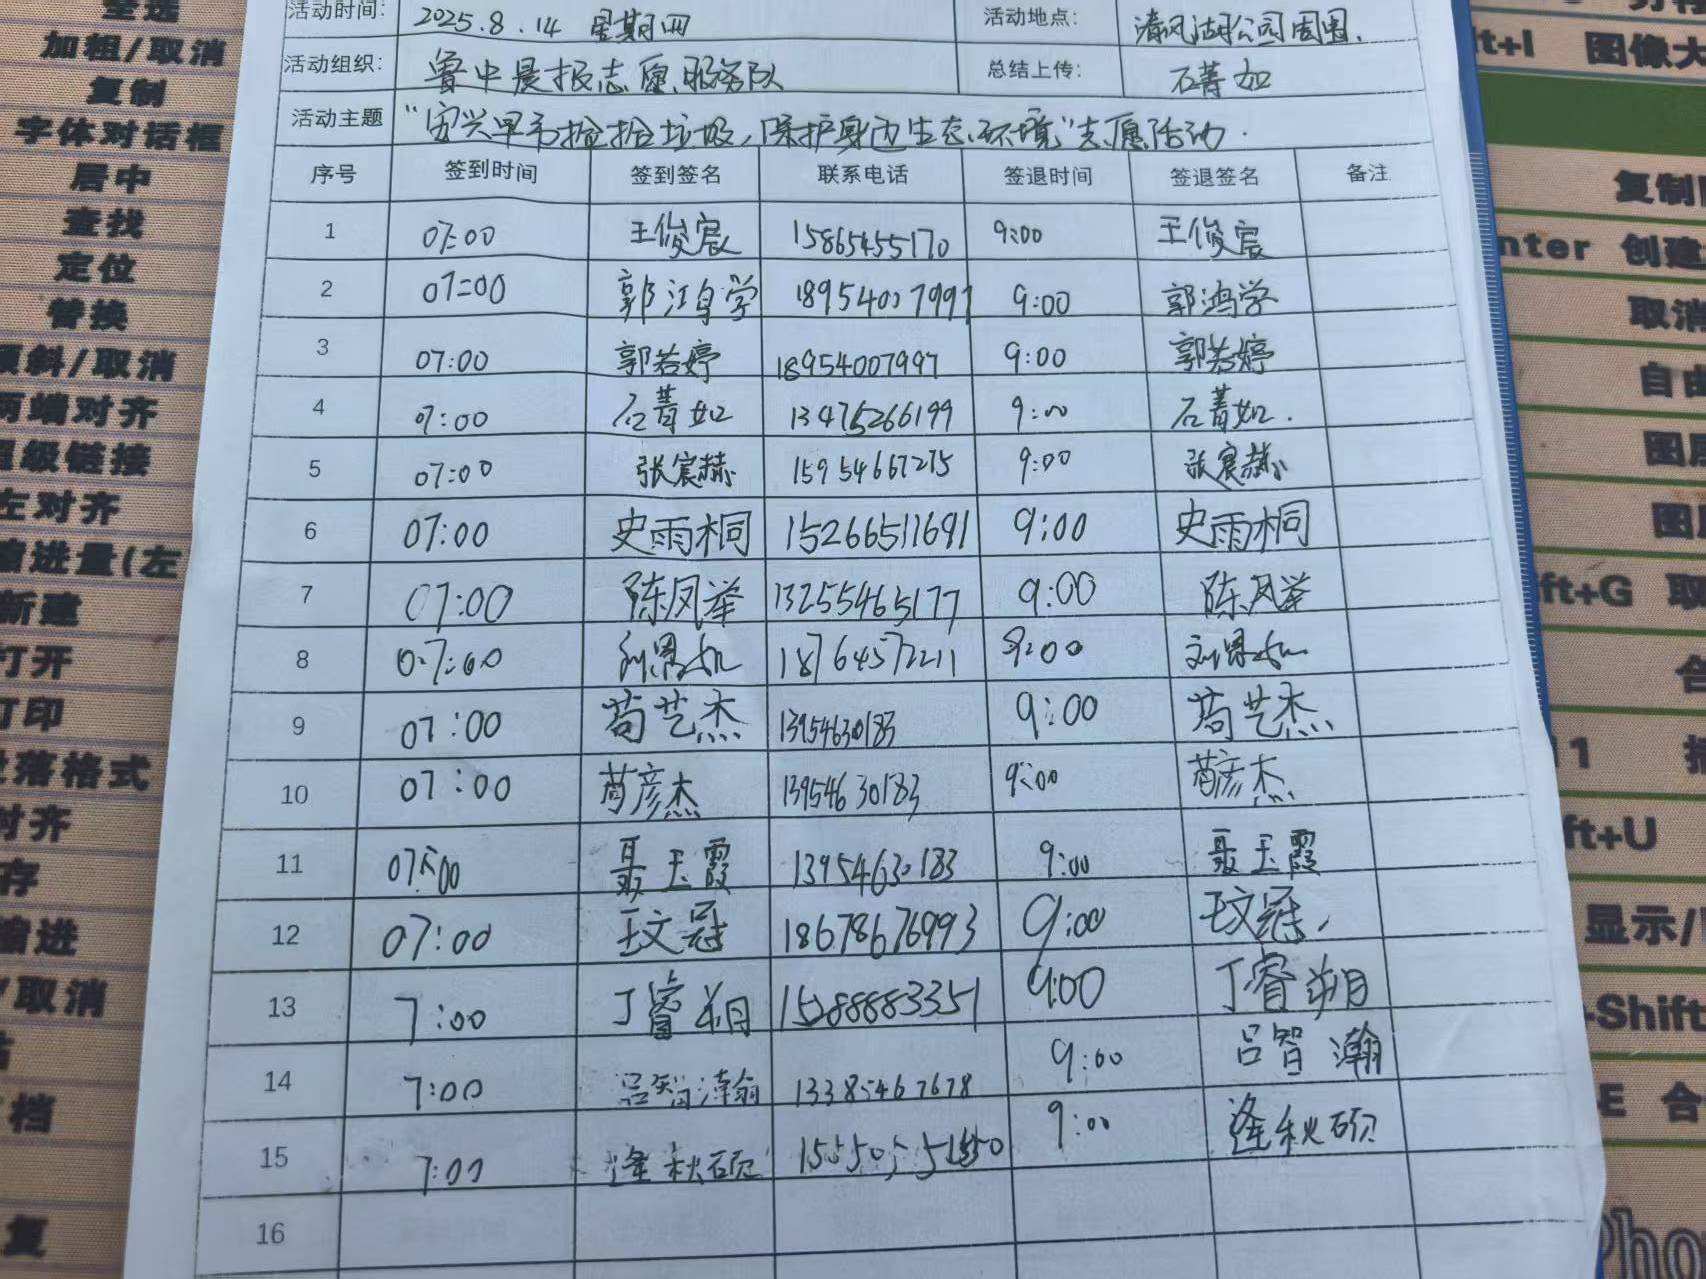 全选
加粗/取消
复制
字体对话框
居中
查找
定位
替换
倾斜/取消
两端对齐
超级链接
左对齐
缩进量(左
新建
打开
打印
段落格式
对齐
存
缩进
/取消
档
复
活动时间: 2025.8.14 星期四 活动地点: 清风湖公园周围.
活动组织: 鲁中晨报志愿服务队 总结上传: 石菁如
活动主题 "安兴早市捡拾垃圾,保护身边生态环境"志愿活动.
序号 签到时间 签到签名 联系电话 签退时间 签退签名 备注
1 07:00 王俊宸 15865455170 9:00 王俊宸
2 07:00 郭鸿学 18954007997 9:00 郭鸿学
3 07:00 郭若婷 18954007997 9:00 郭若婷
4 07:00 石菁如 13475266199 9:00 石菁如.
5 07:00 张宸赫 15954667275 9:00 张宸赫
6 07:00 史雨桐 15266511691 9:00 史雨桐
7 07:00 陈凤举 13255465177 9:00 陈凤举
8 07:00 刘恩如 18764572211 9:00 刘恩如
9 07:00 苟艺杰 13954630183 9:00 苟艺杰
10 07:00 苟彦杰 13954630183 9:00 苟彦杰
11 07:00 聂玉霞 13954630183 9:00 聂玉霞
12 07:00 王文冠 18678676993 9:00 王文冠
13 7:00 丁睿翔 15288883351 9:00 丁睿翔
14 7:00 吕智瀚 13385467678 9:00 吕智瀚
15 7:00 逄秋硕 9:00 逄秋硕
16
t+I 图像大
复制
nter 创建
取消
自由
图
图
ft+G 取
合
11
ft+U
显示/
-Shift
E 合
Pho